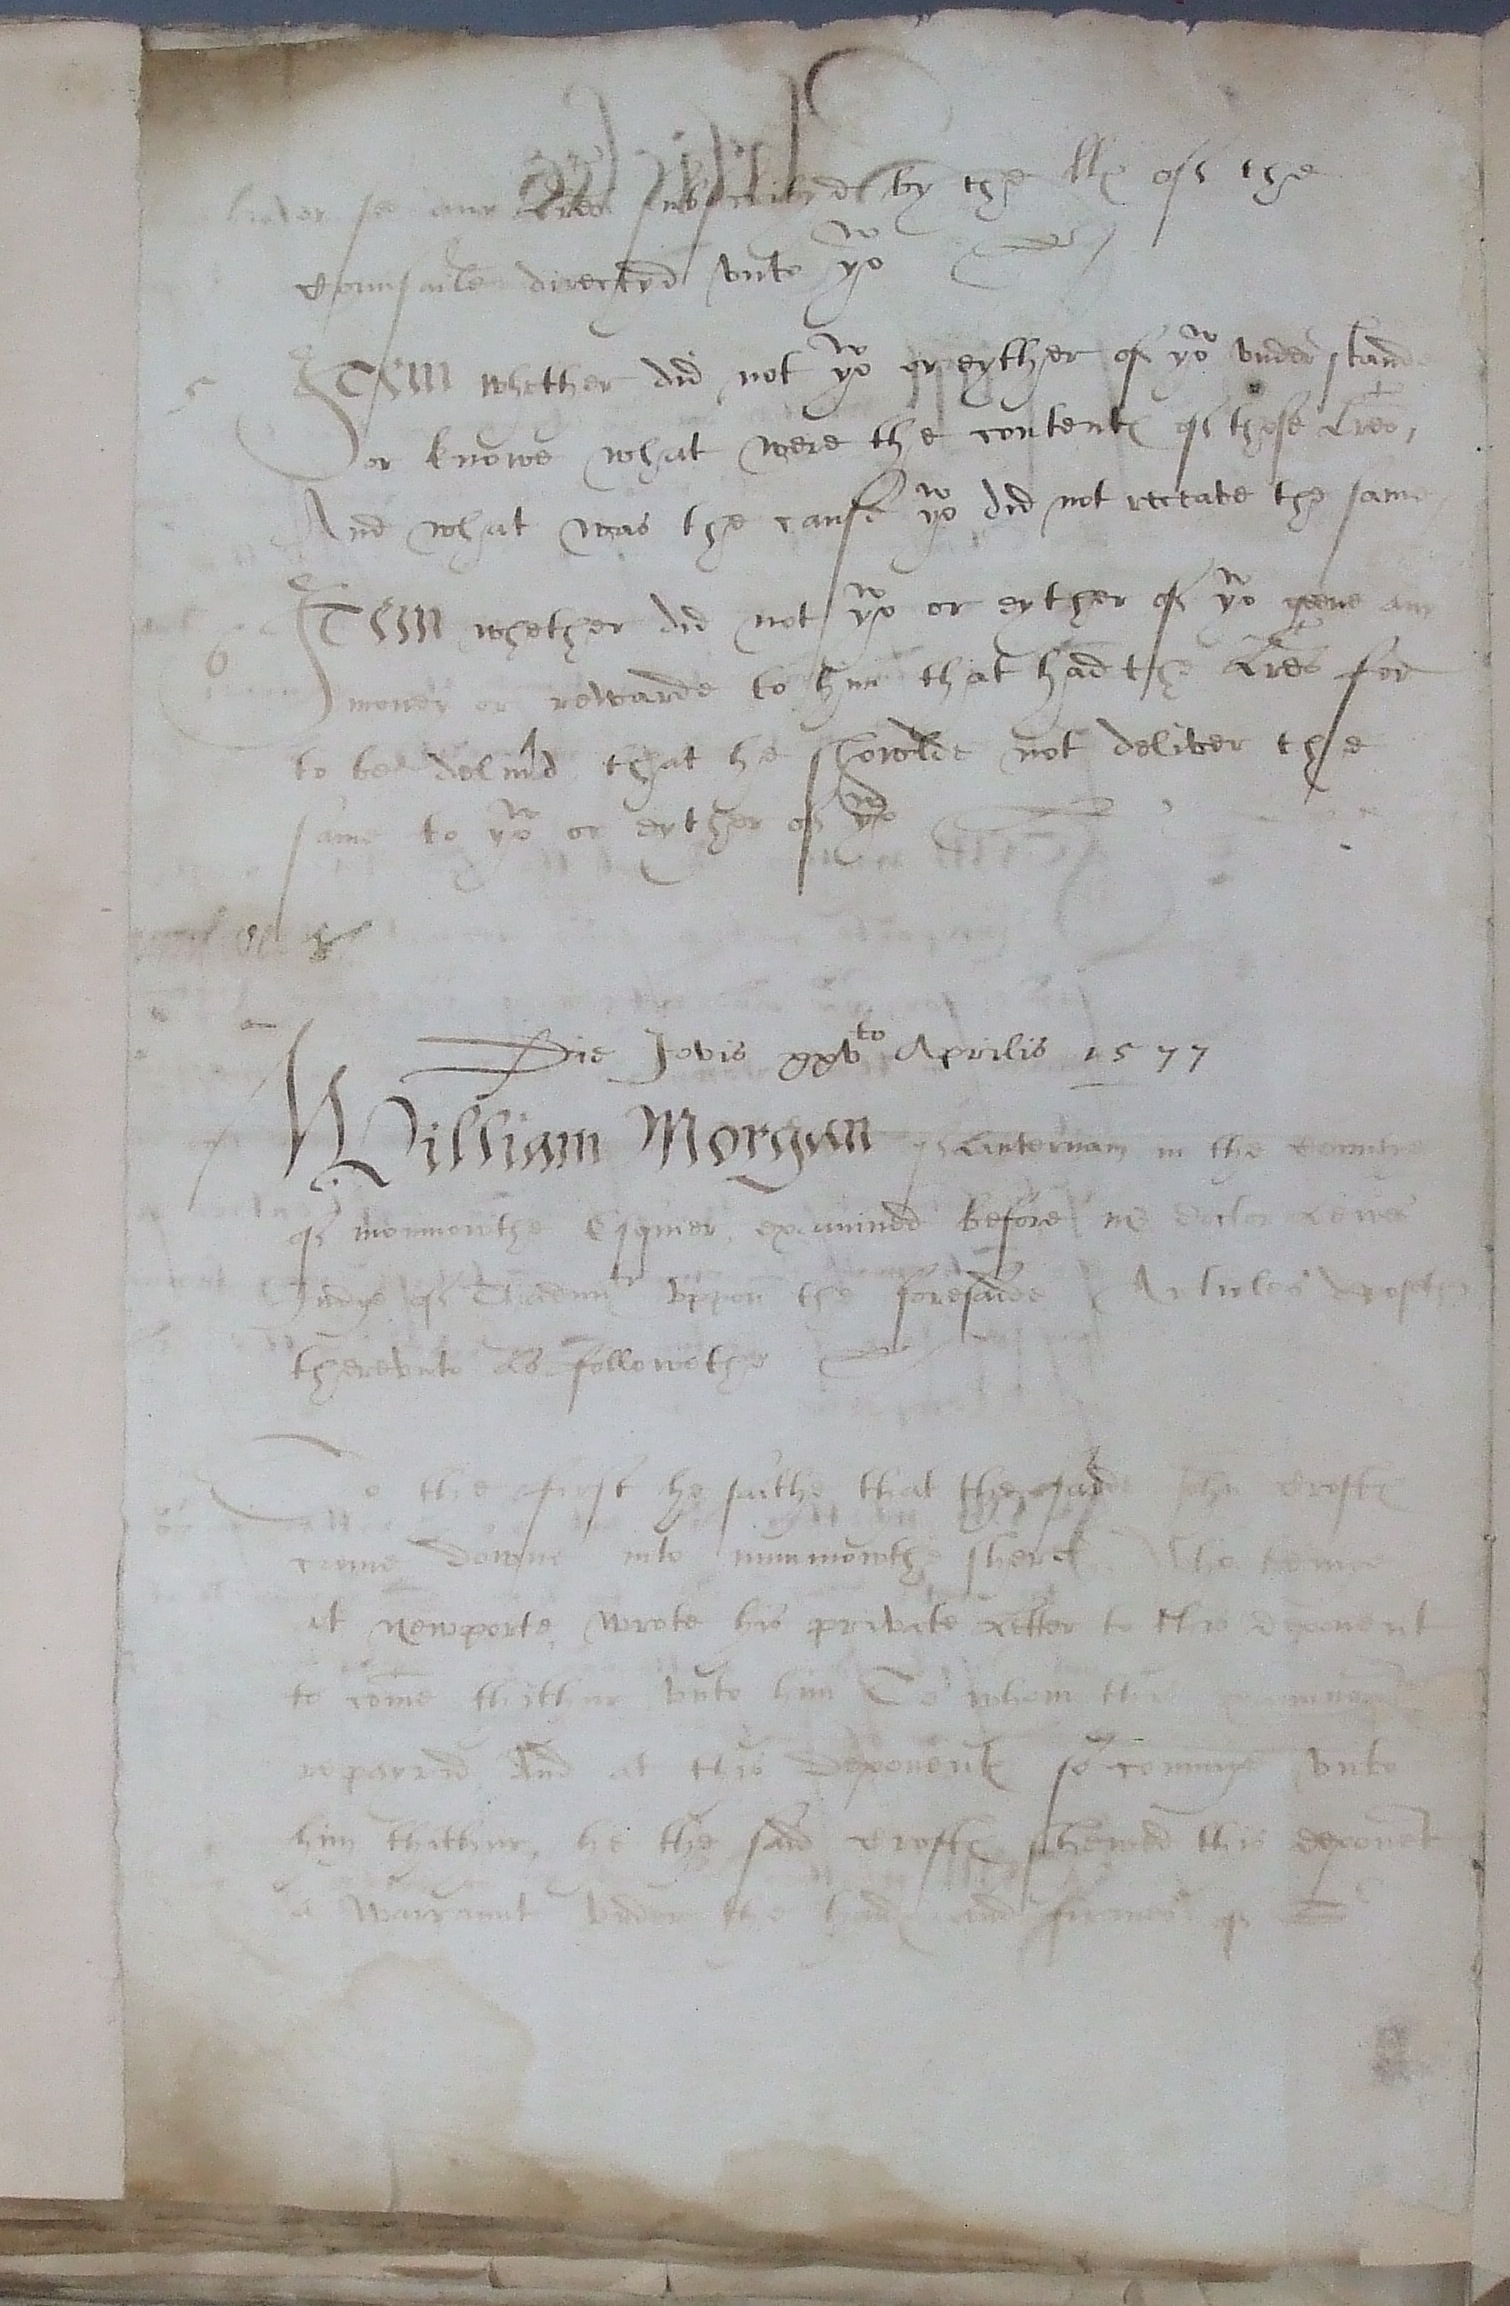 liver se any lres subscribyd by the llp of the
Counsaile directyd vnto yow
5 ITEM whether did not yow or eyther of yow vnderstande
or knowe what were the contentes of those lres,
And what was the cause yow did not receave the same
6 ITEM whether did not yow or eyther of yow geve any
money or rewarde to him that had the lres for
to be deliverd that he showlde not deliver the
same to yow or eyther of yow
Die Jovis xxvto Aprilis 1577
William Morgan of Lanternam in the Countye
of monmowthe Esquier, examined before me doctor Lewes
Judge of Thadmiltie vppon the foresaide Articles
therevnto as followethe
To the first he saithe that the said John Croftes
came downe into munmowthe shere who beinge
at Newporte, wrote his private letter to this deponent
to come thither vnto him To whom this
repayrid And at this deponentes so comynge vnto
him thither, he the said Croftes shewed this deponent
a warraunt vnder the handes and of